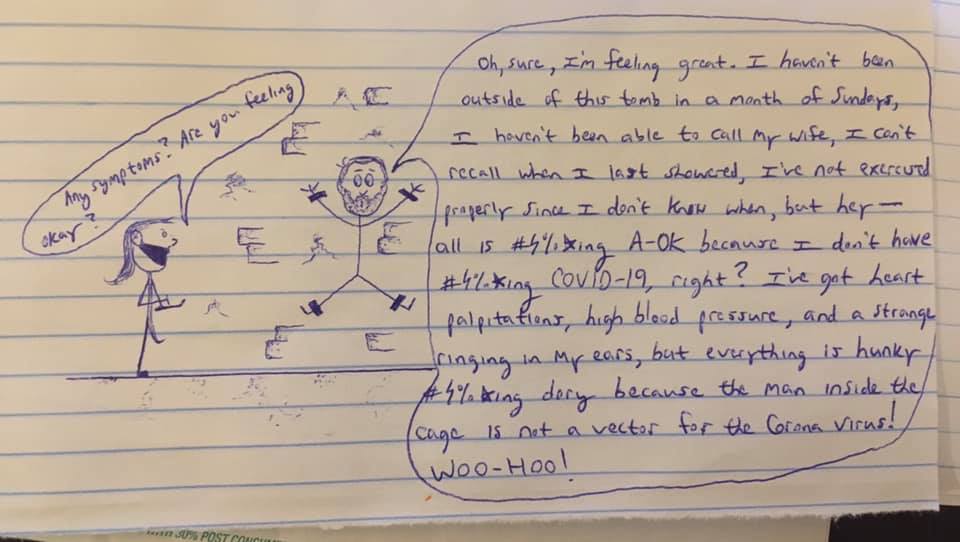 Any symptoms? Are you feeling
okay?
Oh, sure, I'm feeling great. I haven't been
outside of this tomb in a month of Sundays,
I haven't been able to call my wife, I can't
recall when I last showered, I've not exercised
properly since I don't know when, but hey —
all is #$%*ing A-OK because I don't have
#$%*ing COVID-19, right? I've got heart
palpitations, high blood pressure, and a strange
ringing in my ears, but everything is hunky
#$%*ing dory because the man inside the
cage is not a vector for the Corona Virus!
WOO-HOO!
30% POST